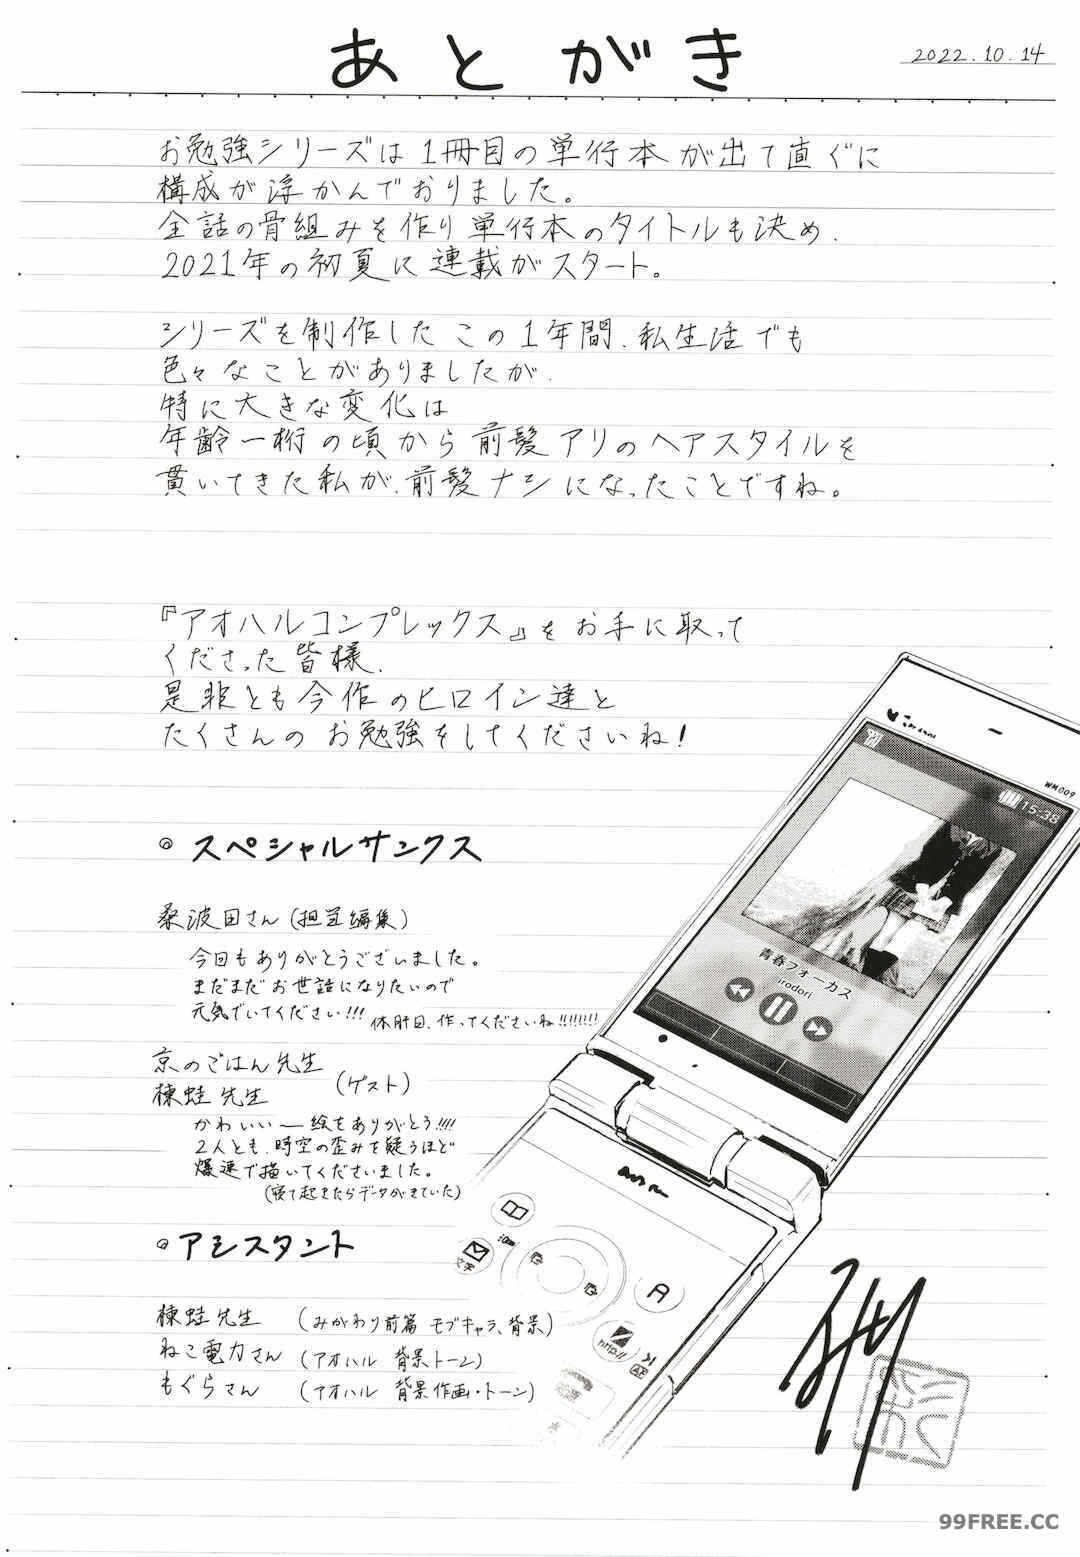 あとがき
2022.10.14
お勉強シリーズは1冊目の単行本が出て直ぐに
構成が浮かんでおりました。
全話の骨組みを作り単行本のタイトルも決め、
2021年の初夏に連載がスタート。
シリーズを制作したこの1年間、私生活でも
色々なことがありましたが、
特に大きな変化は
年齢一桁の頃から前髪アリのヘアスタイルを
貫いてきた私が、前髪ナシになったことですね。
『アオハルコンプレックス』をお手に取って
くださった皆様、
是非とも今作のヒロイン達と
たくさんのお勉強をしてくださいね!
◎スペシャルサンクス
桑波田さん(担当編集)
今回もありがとうございました。
まだまだお世話になりたいので
元気でいてください!!! 休肝日、作ってくださいね!!!!!!!!
京のごはん先生
棟蛙先生 (ゲスト)
かわいいー絵をありがとう!!!!
2人とも、時空の歪みを疑うほど
爆速で描いてくださいました。
(寝て起きたらデータがきていた)
◎アシスタント
棟蛙先生 (みがわり前篇 モブキャラ、背景)
ねこ電力さん (アオハル 背景トーン)
もぐらさん (アオハル 背景作画・トーン)
WM009
15:38
青春フォーカス
irodori
文字
A
http://
AF
99FREE.CC